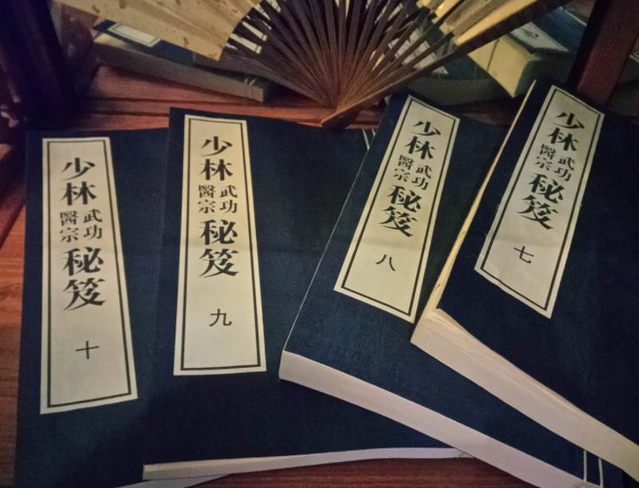 少林
武功
醫宗
秘笈
十
少林
武功
醫宗
秘笈
九
少林
武功
醫宗
秘笈
八
少林
武功
醫宗
秘笈
七